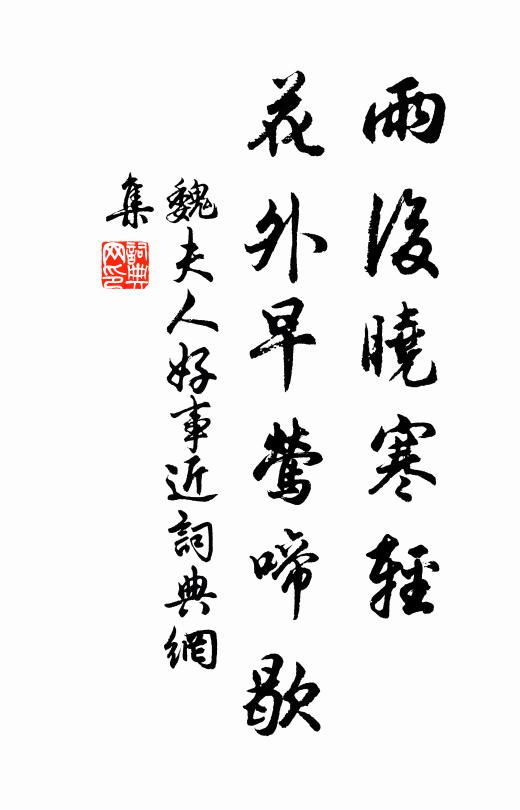 雨後曉寒輕
花外早鶯啼歇
魏夫人好事近詞典網
集
詞典網印